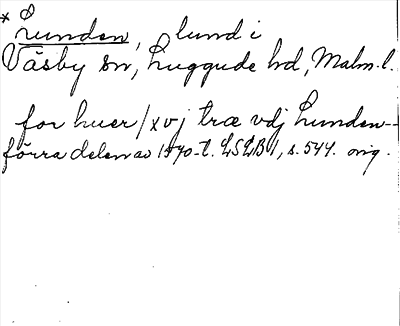 * Lunden, lund i
Väsby sn, Luggude hd, Malm. l.
for huer / xvj træ vdj Lunden –
förra delen av 1570-t. LSLB 1, s. 544. orig.